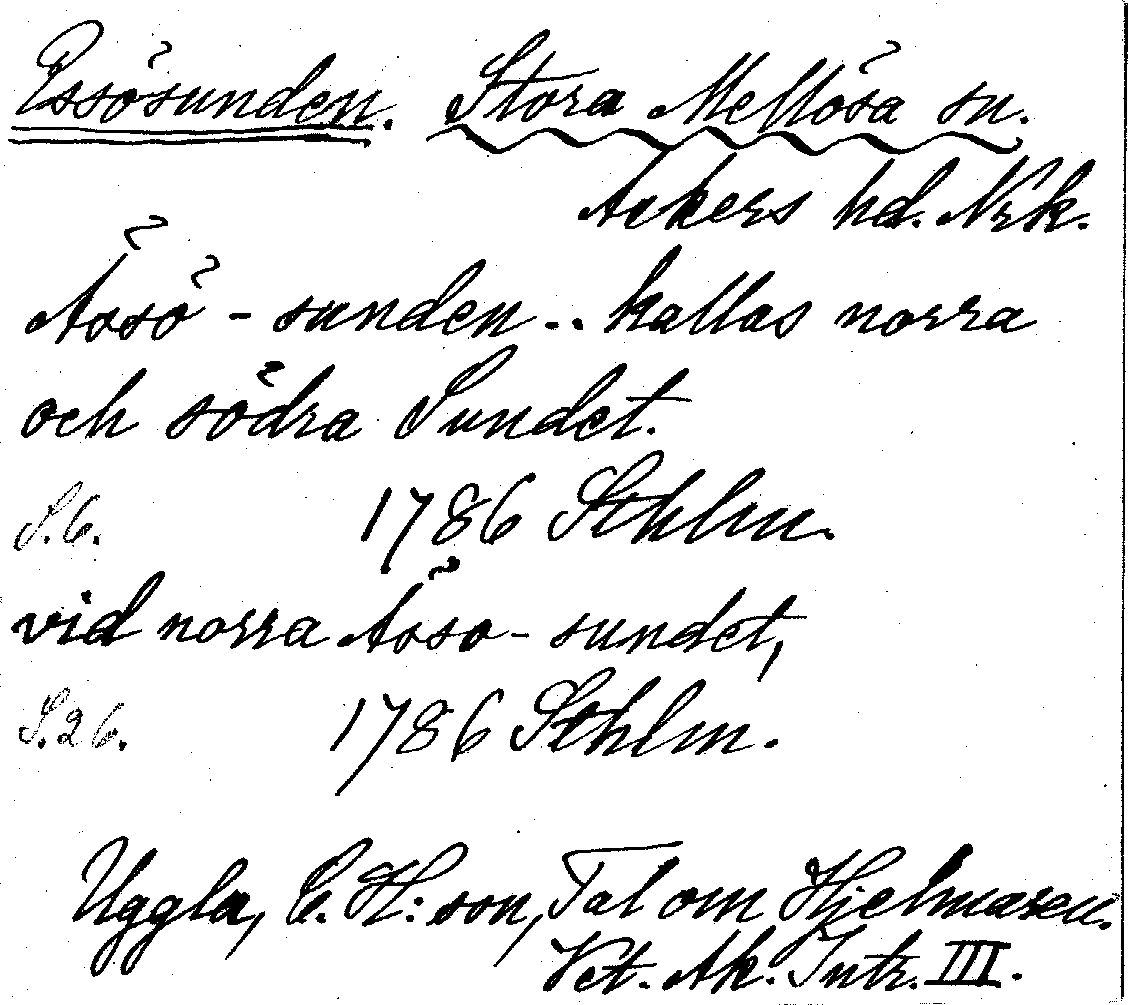 Essösunden. Stora Mellösa sn.
Askers hd. Nrk.
Ässö-sunden .. kallas norra
och södra Sundet.
S. 6. 1786 Sthlm.
vid norra Ässö-sundet,
S. 26. 1786 Sthlm.
Uggla, C. H:son, Tal om Hjelmaren.
Vet. Ak. Intr. III.